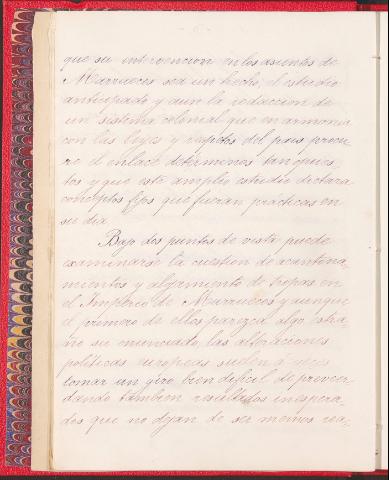 que su intervencion en los asuntos de
Marruecos sea un hecho, el estudio
anticipado y aun la redaccion de
un sistema colonial que en armonia
con las leyes y del pais procu
re el enlace de terrenos tan
tos y que este amplio estudio dictara
conceptos fijos que fueran prácticas en
su dia.
Bajo dos puntos de vista puede
examinarse la cuestion de acantona-
mientos y alojamiento de tropas en
el Imperio de Marruecos y aunque
el primero de ellos parezca algo estra-
ño su enunciado, las alteraciones
políticas europeas suelen á veces
tomar un giro bien dificil de preveer
dando tambien resultados inespera-
dos que no dejan de ser menos rea-